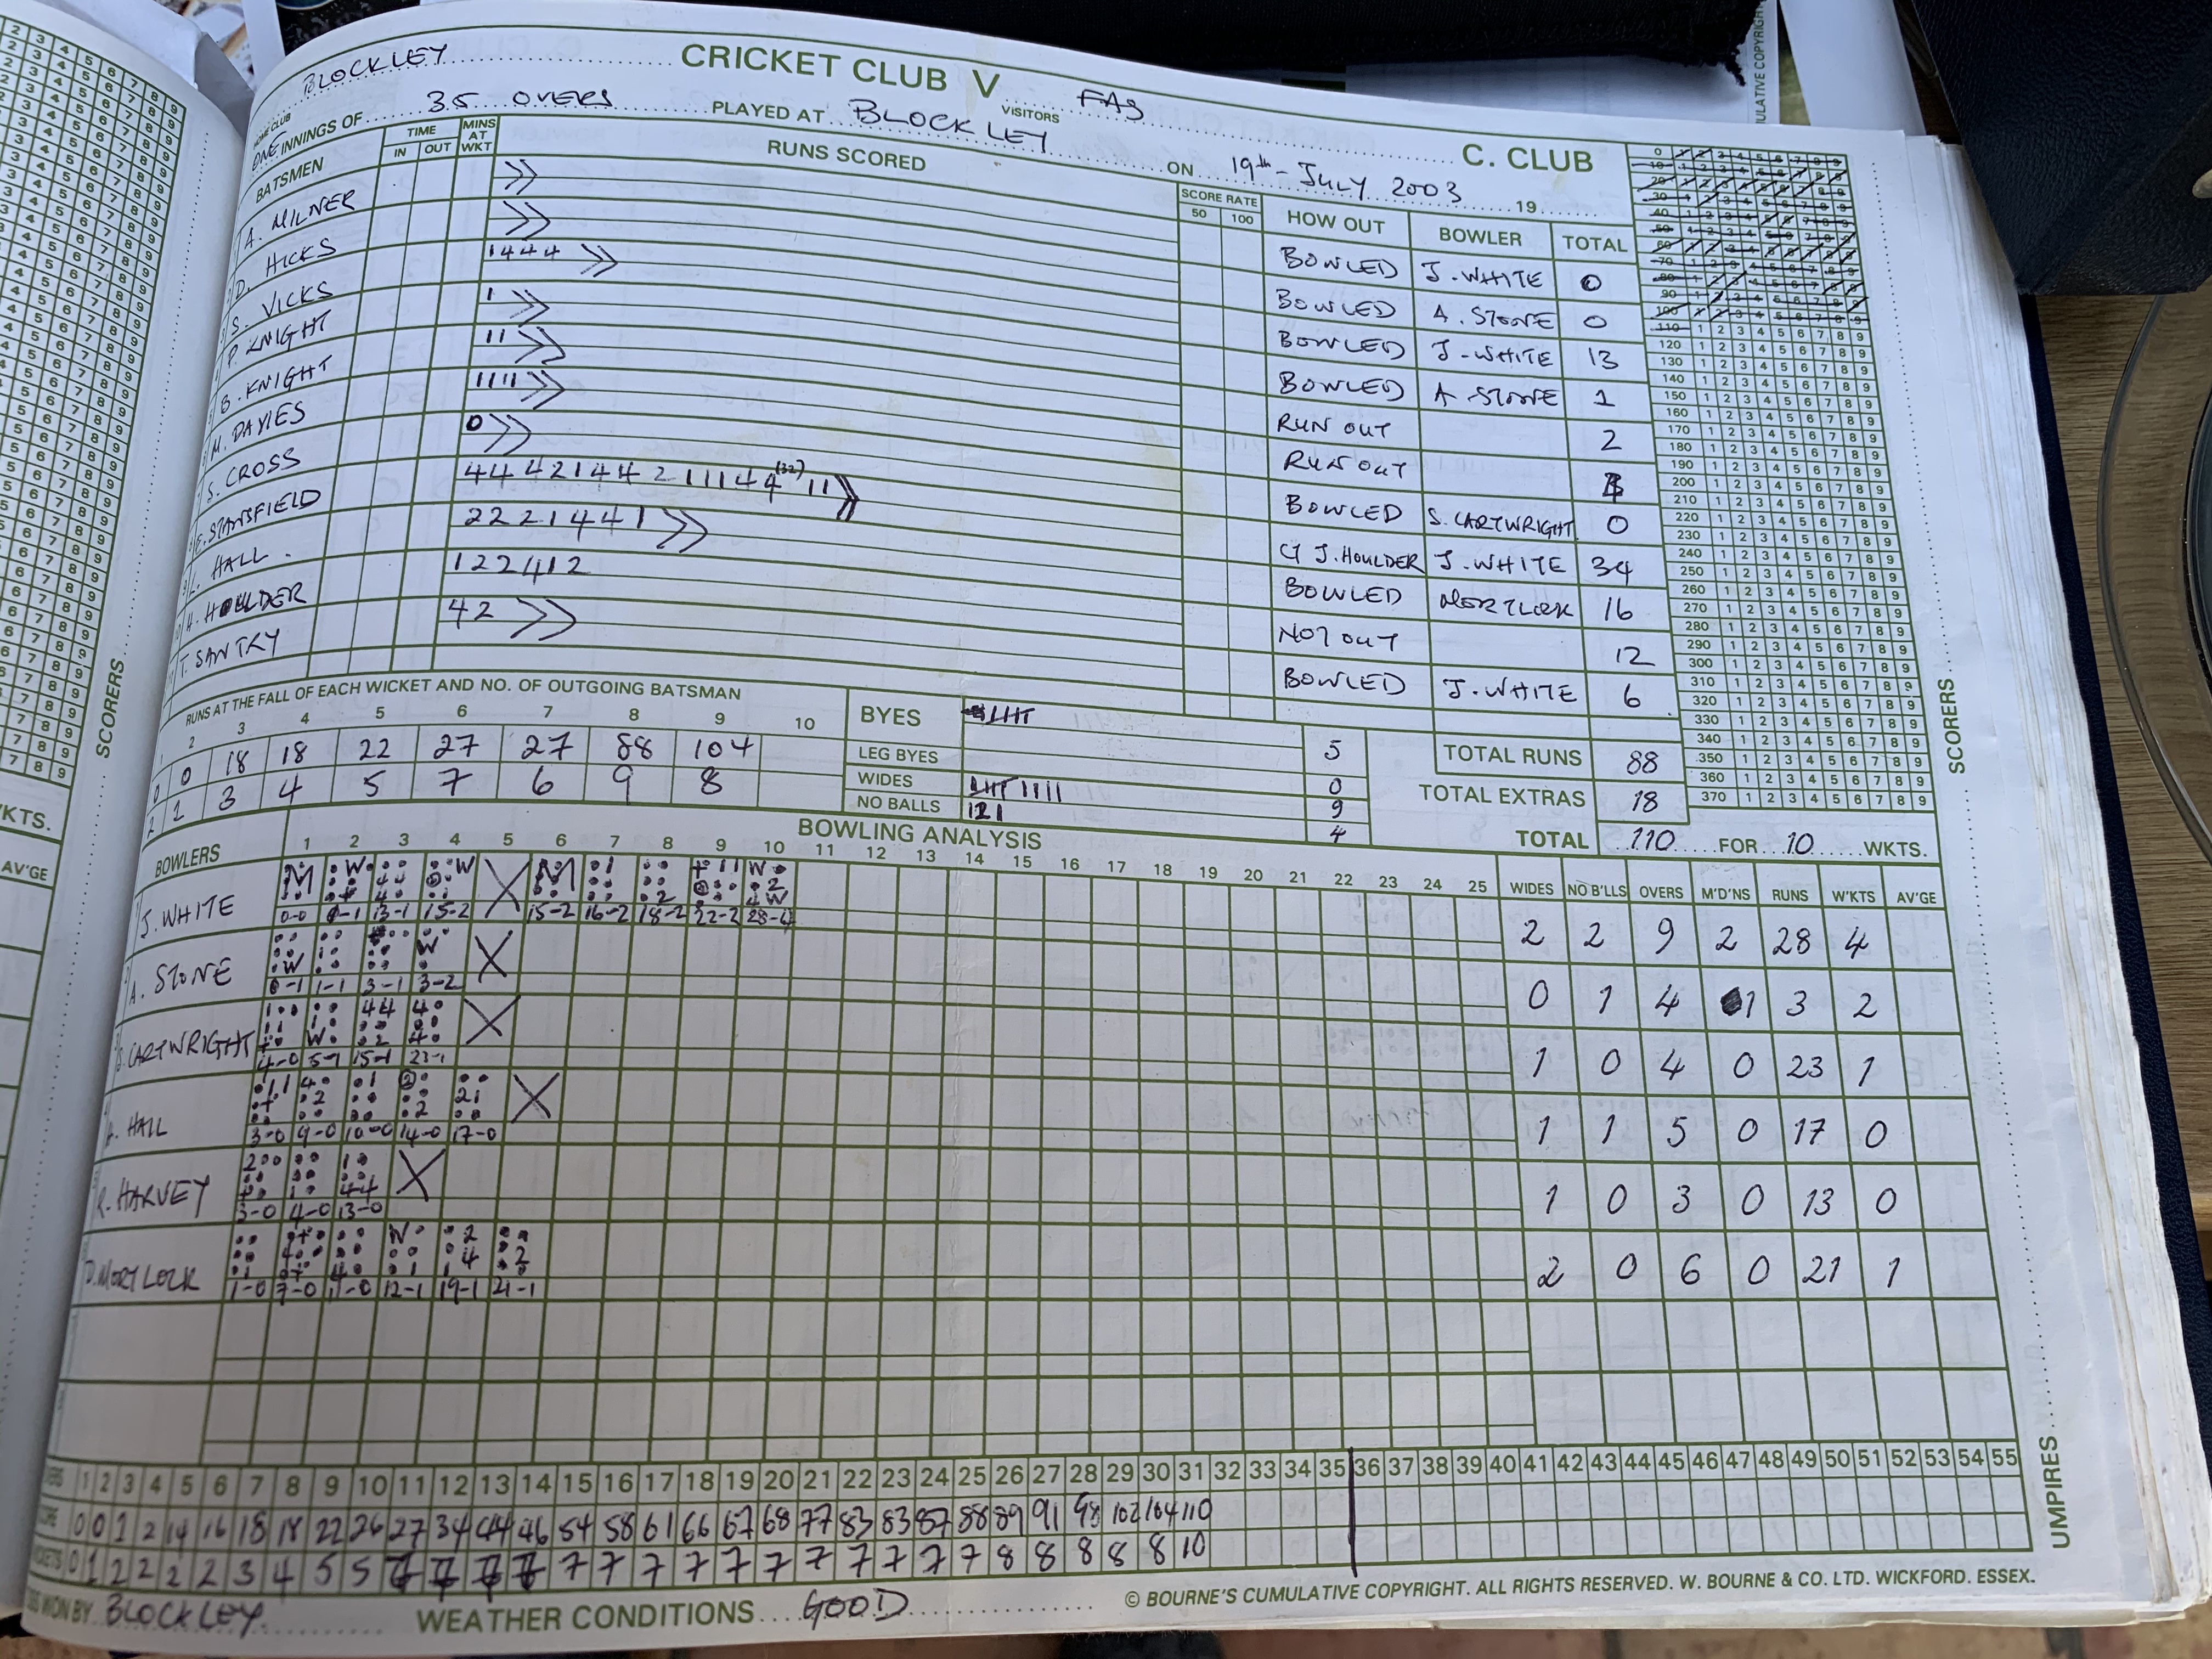 BLOCKLEY CRICKET CLUB V VISITORS FAS C. CLUB
HOME CLUB
ONE INNINGS OF 35 OVERS PLAYED AT BLOCKLEY ON 19th JULY 2003 19
BATSMEN TIME IN OUT MINS AT WKT RUNS SCORED SCORE RATE 50 100 HOW OUT BOWLER TOTAL
A. MILNER BOWLED J. WHITE 0
D. HICKS BOWLED A. STONE 0
S. VICKS 1444 BOWLED J. WHITE 13
P. KNIGHT 1 BOWLED A. STONE 1
B. KNIGHT 11 RUN OUT 2
M. DAVIES 1111 RUN OUT
S. CROSS 0 BOWLED S. CARTWRIGHT 0
STANSFIELD 4442144211144 (32) 11 CT J. HOULDER J. WHITE 34
L. HALL 2221441 BOWLED MORTLOCK 16
H. HOULDER 122412 NOT OUT 12
T. SANTKY 42 BOWLED J. WHITE 6
RUNS AT THE FALL OF EACH WICKET AND NO. OF OUTGOING BATSMAN
1 2 3 4 5 6 7 8 9 10
0 0 18 18 22 27 27 88 104
2 1 3 4 5 7 6 9 8
BYES 5
LEG BYES 0
WIDES 9
NO BALLS 121 4
TOTAL RUNS 88
TOTAL EXTRAS 18
TOTAL 110 FOR 10 WKTS.
BOWLERS BOWLING ANALYSIS
1 2 3 4 5 6 7 8 9 10 11 12 13 14 15 16 17 18 19 20 21 22 23 24 25 WIDES NO B'LLS OVERS M'D'NS RUNS W'KTS AV'GE
J. WHITE 0-0 13-1 15-2 15-2 16-2 18-2 22-2 28-4 2 2 9 2 28 4
A. STONE 0-1 1-1 3-1 3-2 0 1 4 1 3 2
S. CARTWRIGHT 4-0 5-1 15-1 23-1 1 0 4 0 23 1
HALL 3-0 9-0 10-0 14-0 17-0 1 1 5 0 17 0
R. HARVEY 3-0 4-0 13-0 1 0 3 0 13 0
D. MORTLOCK 1-0 7-0 11-0 12-1 19-1 21-1 2 0 6 0 21 1
1 2 3 4 5 6 7 8 9 10 11 12 13 14 15 16 17 18 19 20 21 22 23 24 25 26 27 28 29 30 31 32 33 34 35 36 37 38 39 40 41 42 43 44 45 46 47 48 49 50 51 52 53 54 55
0 0 1 2 14 16 18 18 22 26 27 34 44 46 54 58 61 66 67 68 77 83 83 87 88 89 91 98 102 104 110
0 1 2 2 2 2 3 4 5 5 7 7 7 7 7 7 7 7 7 7 7 7 7 7 7 8 8 8 8 8 10
WON BY BLOCKLEY WEATHER CONDITIONS GOOD
© BOURNE'S CUMULATIVE COPYRIGHT. ALL RIGHTS RESERVED. W. BOURNE & CO. LTD. WICKFORD. ESSEX.
SCORERS
UMPIRES
SCORERS
WKTS.
AV'GE